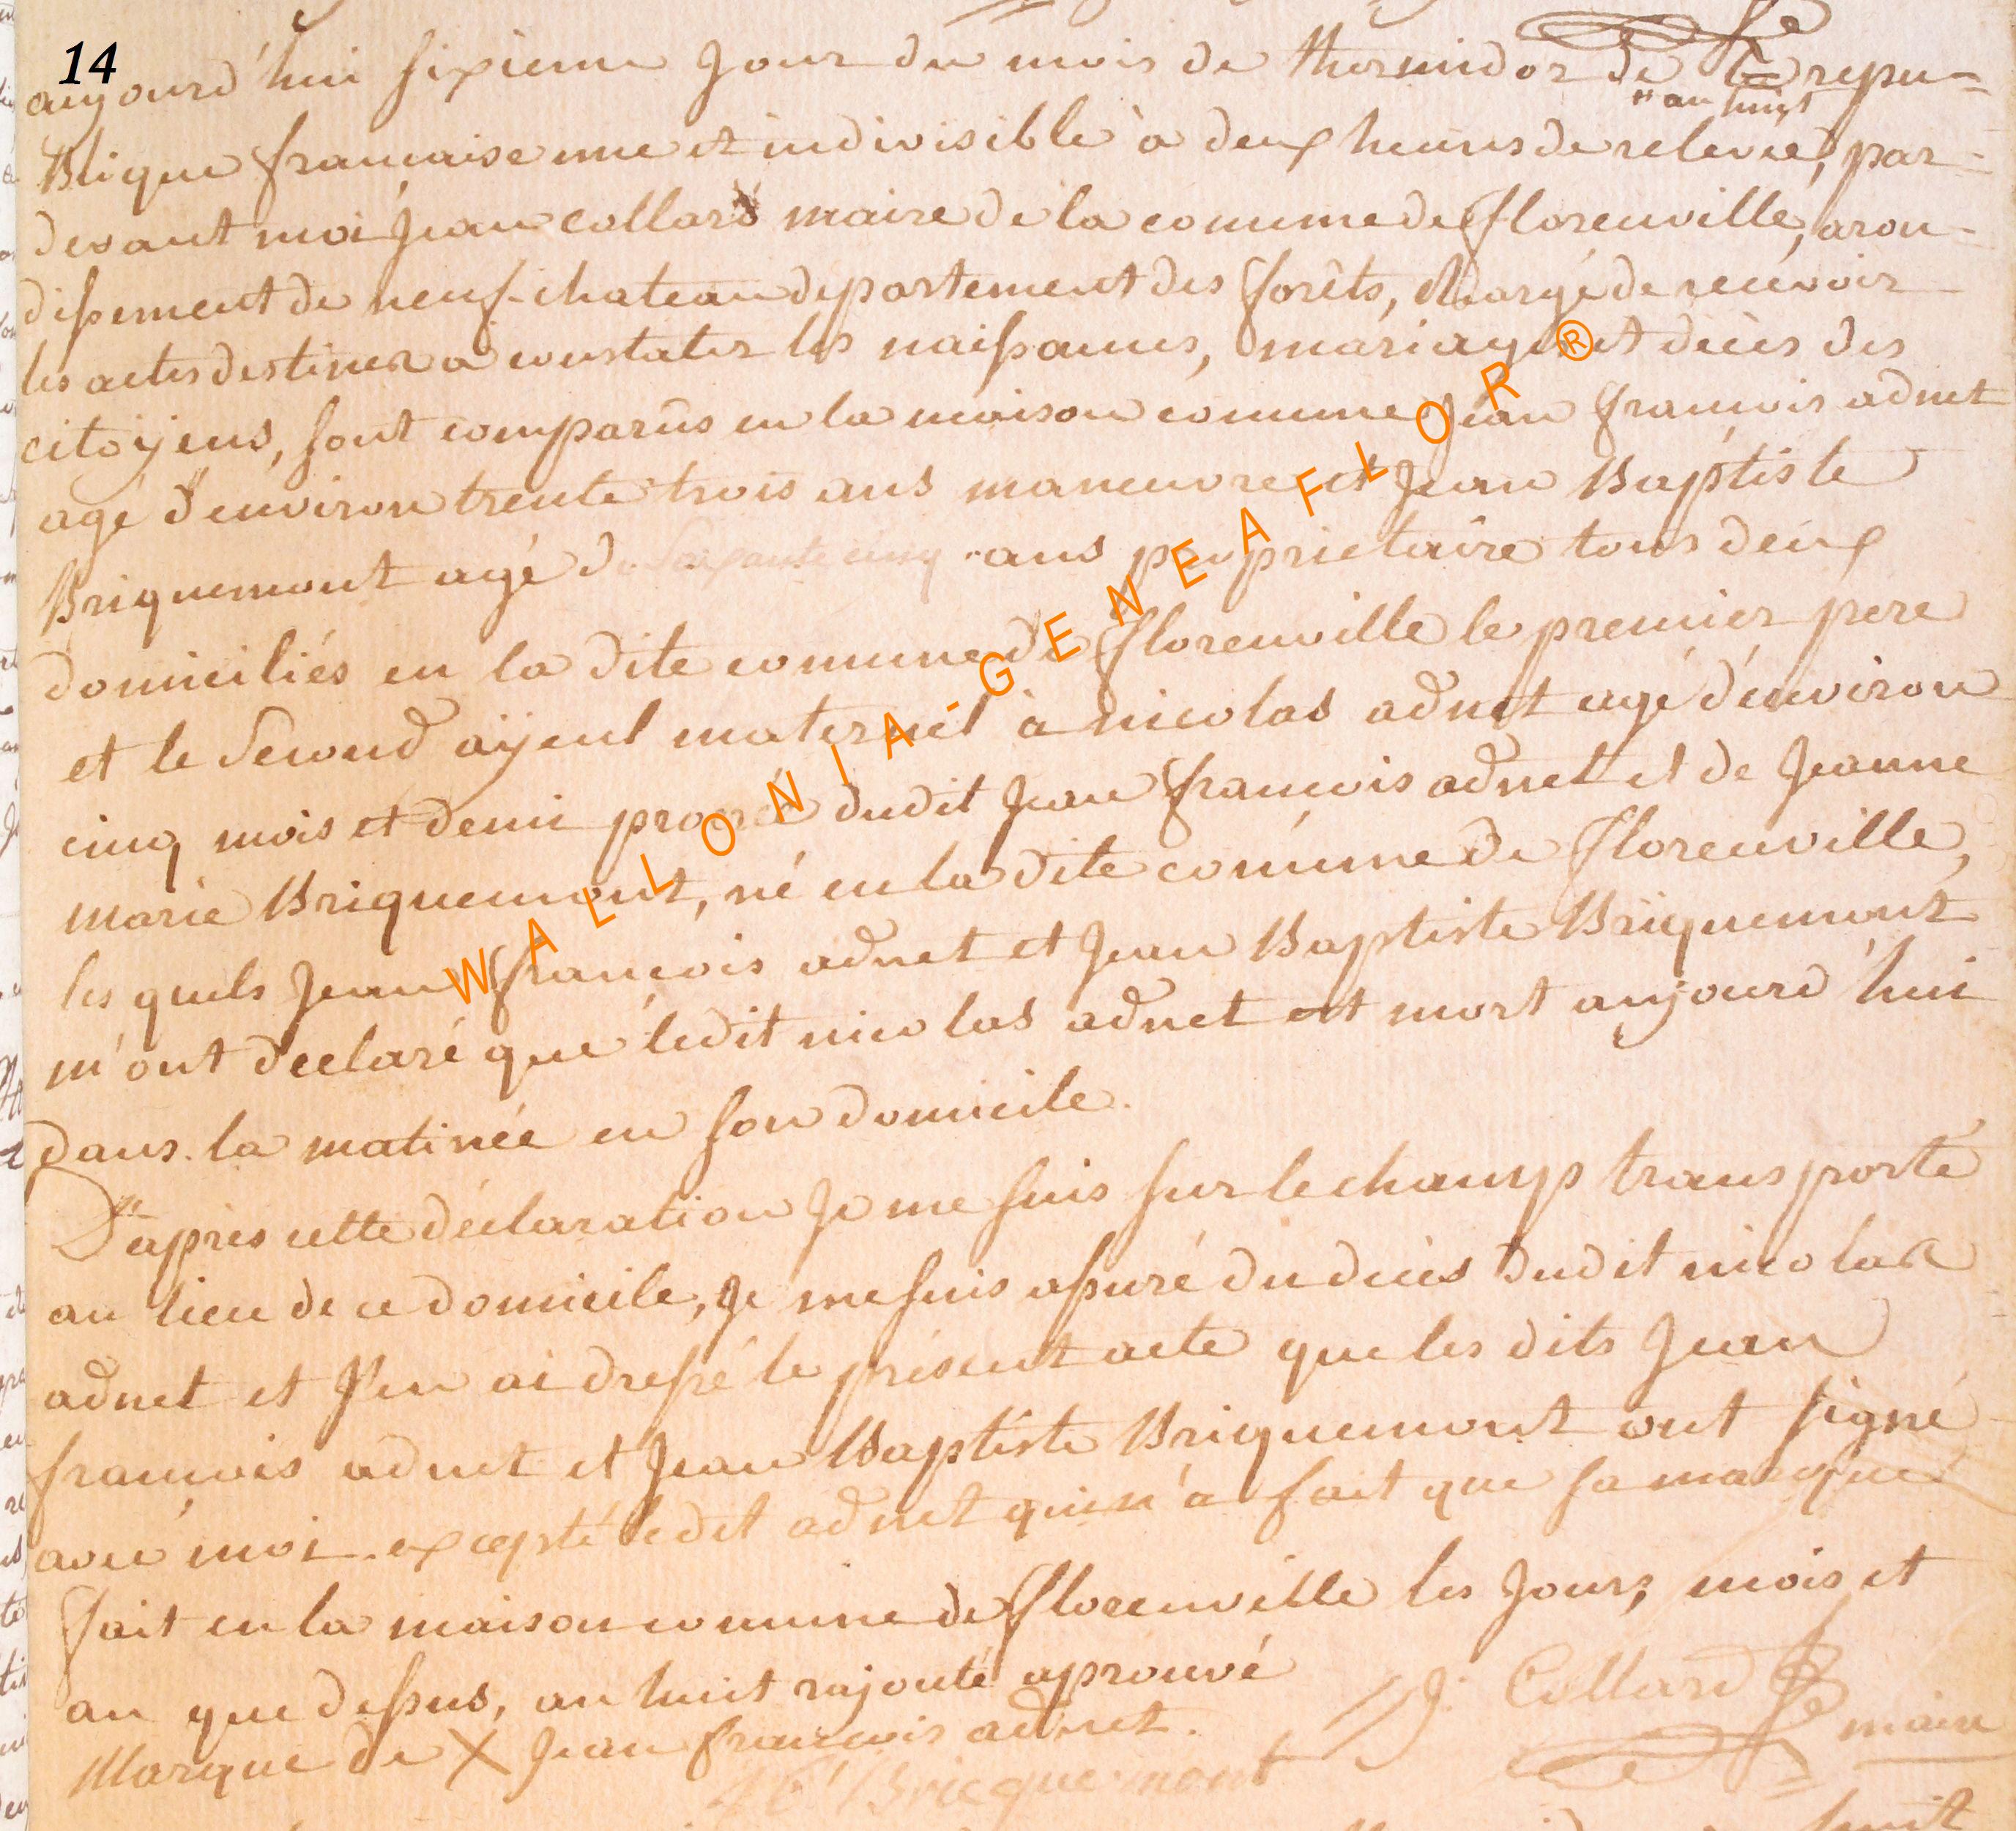 14
aujourd'hui sixieme Jour du mois de thermidor de la repu=
" an huit
Blique francaise une et indivisible à deux heures de relevée, par=
devant moi Jean Collard maire de la comune de florenville, aron-
dissement de neuf-chateau departement des forêts, chargé de recevoir
les actes destinés a constater les naissances, mariages et décès des
citoÿens, sont comparus en la maison comune Jean francois adnet
agé d'environ trente trois ans maneuvre et Jean Baptiste
Briquemont agé de soixante cinq ans proprietaire tous deux
domiciliés en la dite comune de florenville le premier pere
et le second aÿeul maternel à nicolas adnet agé d'environ
cinq mois et demi procréé dudit Jean francois adnet et de Jeanne
marie Briquemont, né en la dite comune de florenville,
les quels Jean francois adnet et Jean Baptiste Briquemont
m'ont declaré que ledit nicolas adnet est mort aujourd'hui
dans la matinée en son domicile.
D'après cette déclaration Je me suis sur le champ transporté
au lieu de ce domicile, Je me suis assuré du décès dudit nicolas
adnet et J'en ai dressé le présent acte que les dits Jean
francois adnet et Jean Baptiste Briquemont ont signé
avec moi excepté ledit adnet qui n'a fait que sa marque
fait en la maison comune de florenville les Jours, mois et
an que dessus, an huit rajouté aprouvé
J. Collard
maire
Marque de X Jean francois adnet.
Bricquemont
huit
WALLONIA-GENEAFLOR®